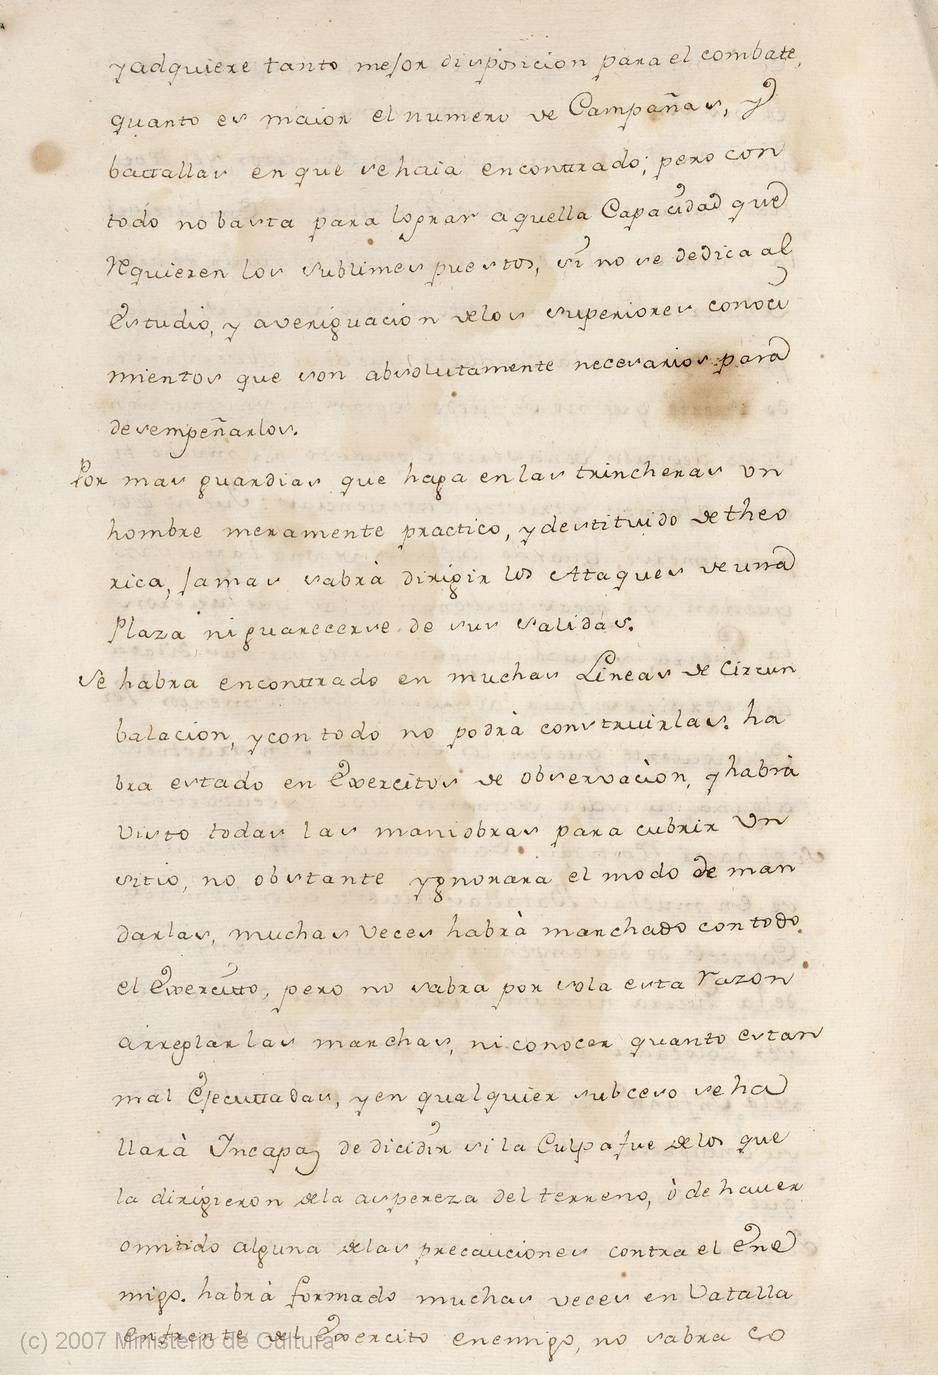 y adquiere tanto mejor disposicion para el combate,
quanto es maior el numero de Campañas, y
battallas en que se haia encontrado; pero con
todo no basta para lograr aquella Capacidad que
requieren los sublimes puestos, si no se dedica al
Estudio, y averiguacion de los superiores conoci
mientos que son absolutamente necesarios para
desempeñarlos.
Por mas guardias que haga en las trincheras un
hombre meramente practico, y destituido de theo
rica, jamas sabrà dirigir los Ataques de una
Plaza ni guarecerse de sus salidas.
Se habra encontrado en muchas Lineas de Circun
balacion, y con todo no podrà construirlas. ha
bra estado en Exercitos de observaciòn, y habrà
visto todas las maniobras para cubrir un
sitio, no obstante ygnorara el modo de man
darlas, muchas veces habrà marchado con todo
el Exercitto, pero no sabra por sola esta razon
arreglar las marchas, ni conocer quanto estan
mal Ejecuttadas, y en qualquier subceso se ha
llarà Incapaz de dicidir si la Culpa fue de los que
la dirigieron de la aspereza del terreno, ò de haver
omitido alguna de las precauciones contra el Ene
migo. habrà formado muchas veces en Vatalla
enfrente del Exercito enemigo, no sabra co
(c) 2007 Ministerio de Cultura